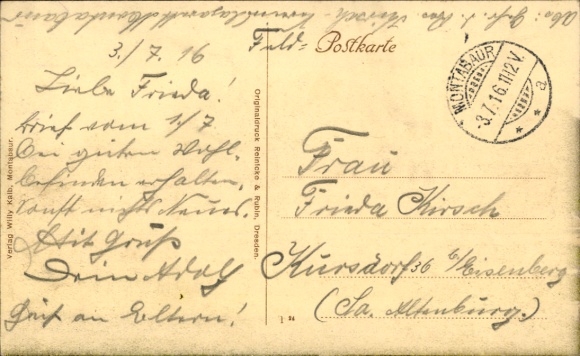 Feld-Postkarte
3./7.16
Liebe Frieda!
Brief vom 1/7
bei guten Wohl-
befinden erhalten,
sonst nichts Neues.
Mit Gruß
Dein Adolf
Gruß an Eltern!
Verlag Willy Kalb, Montabaur.
Originaldruck Reinicke & Rubin, Dresden.
MONTABAUR
-3.7.16.11-12V.
* * a
Frau
Frieda Kirsch
Kursdorf 36 b/Eisenberg
(Sa. Altenburg.)